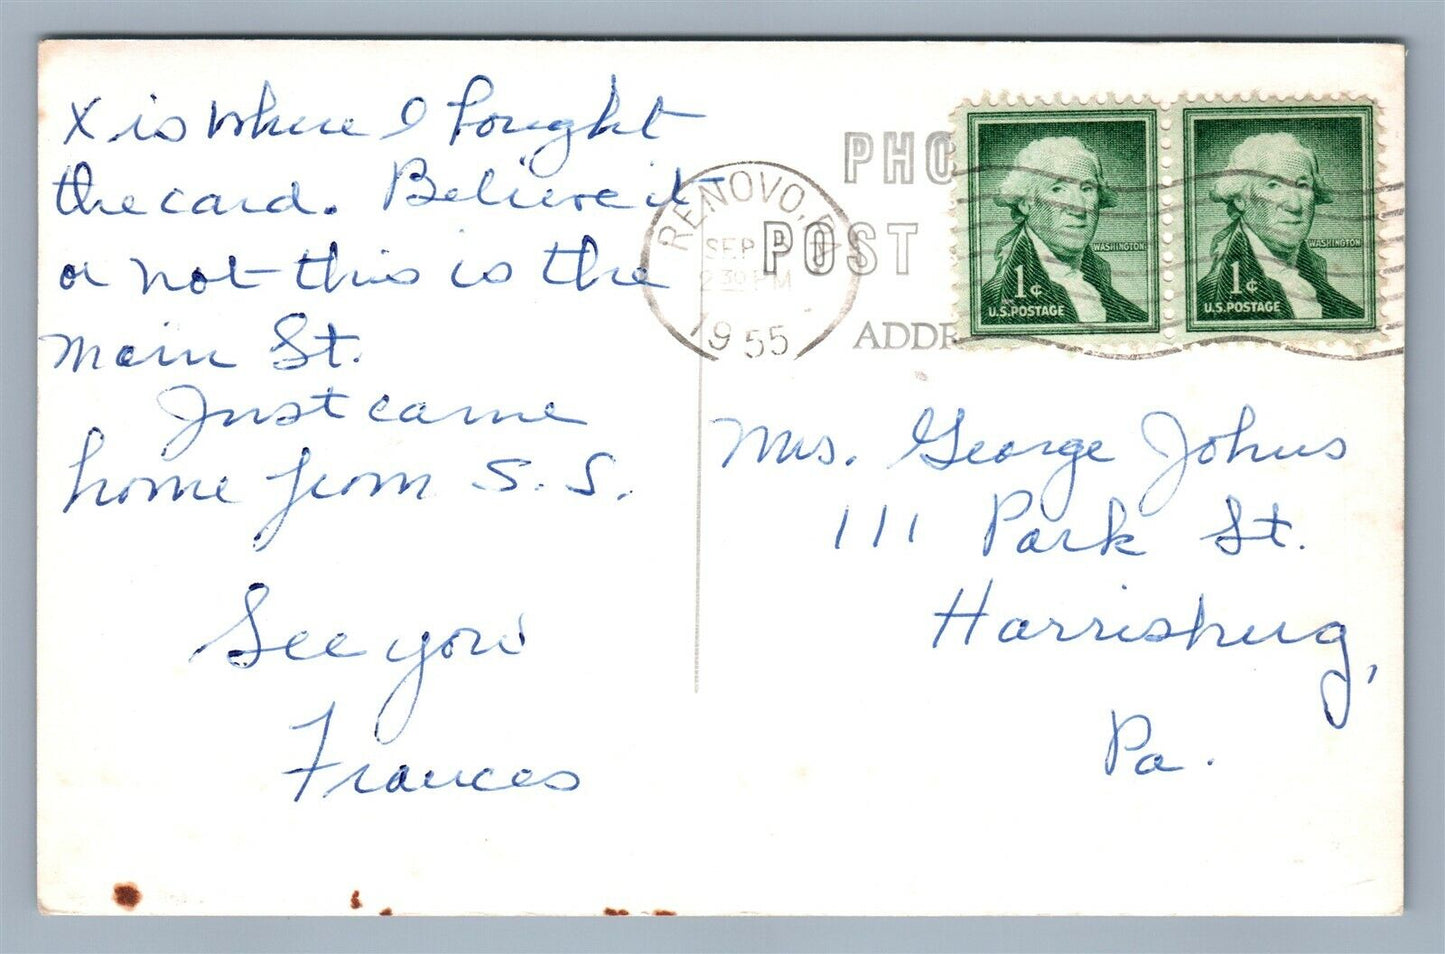 X is where I bought
the card. Believe it
or not this is the
Main St.
Just came
home from S. S.
See you
Frances
PHO
POST
ADDR
RENOVO, P
SEP
2 30 PM
1955
WASHINGTON
1¢
U.S. POSTAGE
WASHINGTON
1¢
U.S. POSTAGE
Mrs. George Johns
111 Park St.
Harrisburg,
Pa.